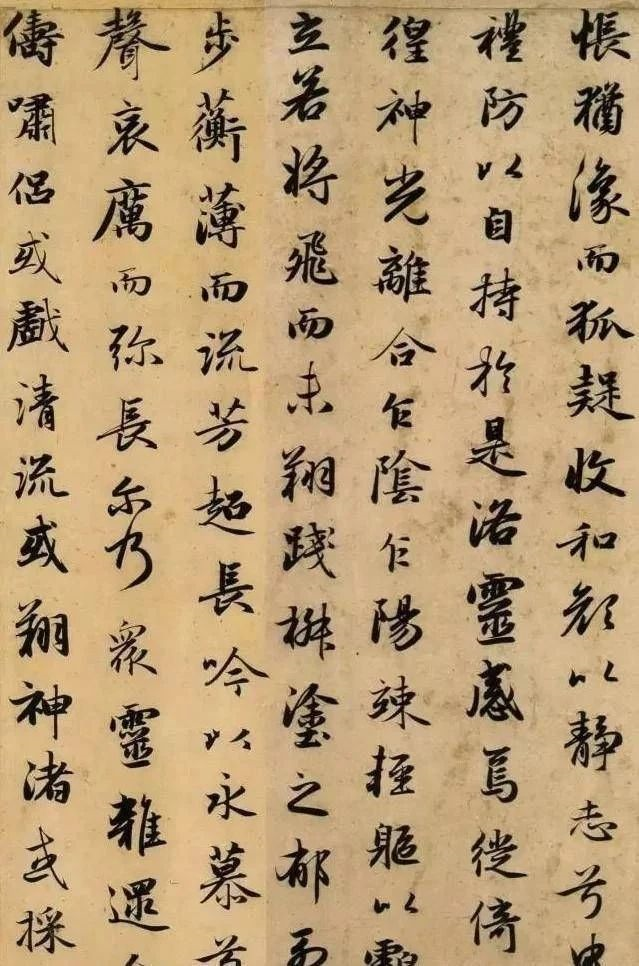 悵猶豫而狐疑收和顏以静志兮申
禮防以自持於是洛靈感焉徙倚
徨神光離合乍陰乍陽竦輕軀以
立若將飛而未翔踐椒塗之郁
步蘅薄而流芳超長吟以永慕兮
聲哀厲而弥長尒乃眾靈雜遝
儔嘯侣或戲清流或翔神渚或採